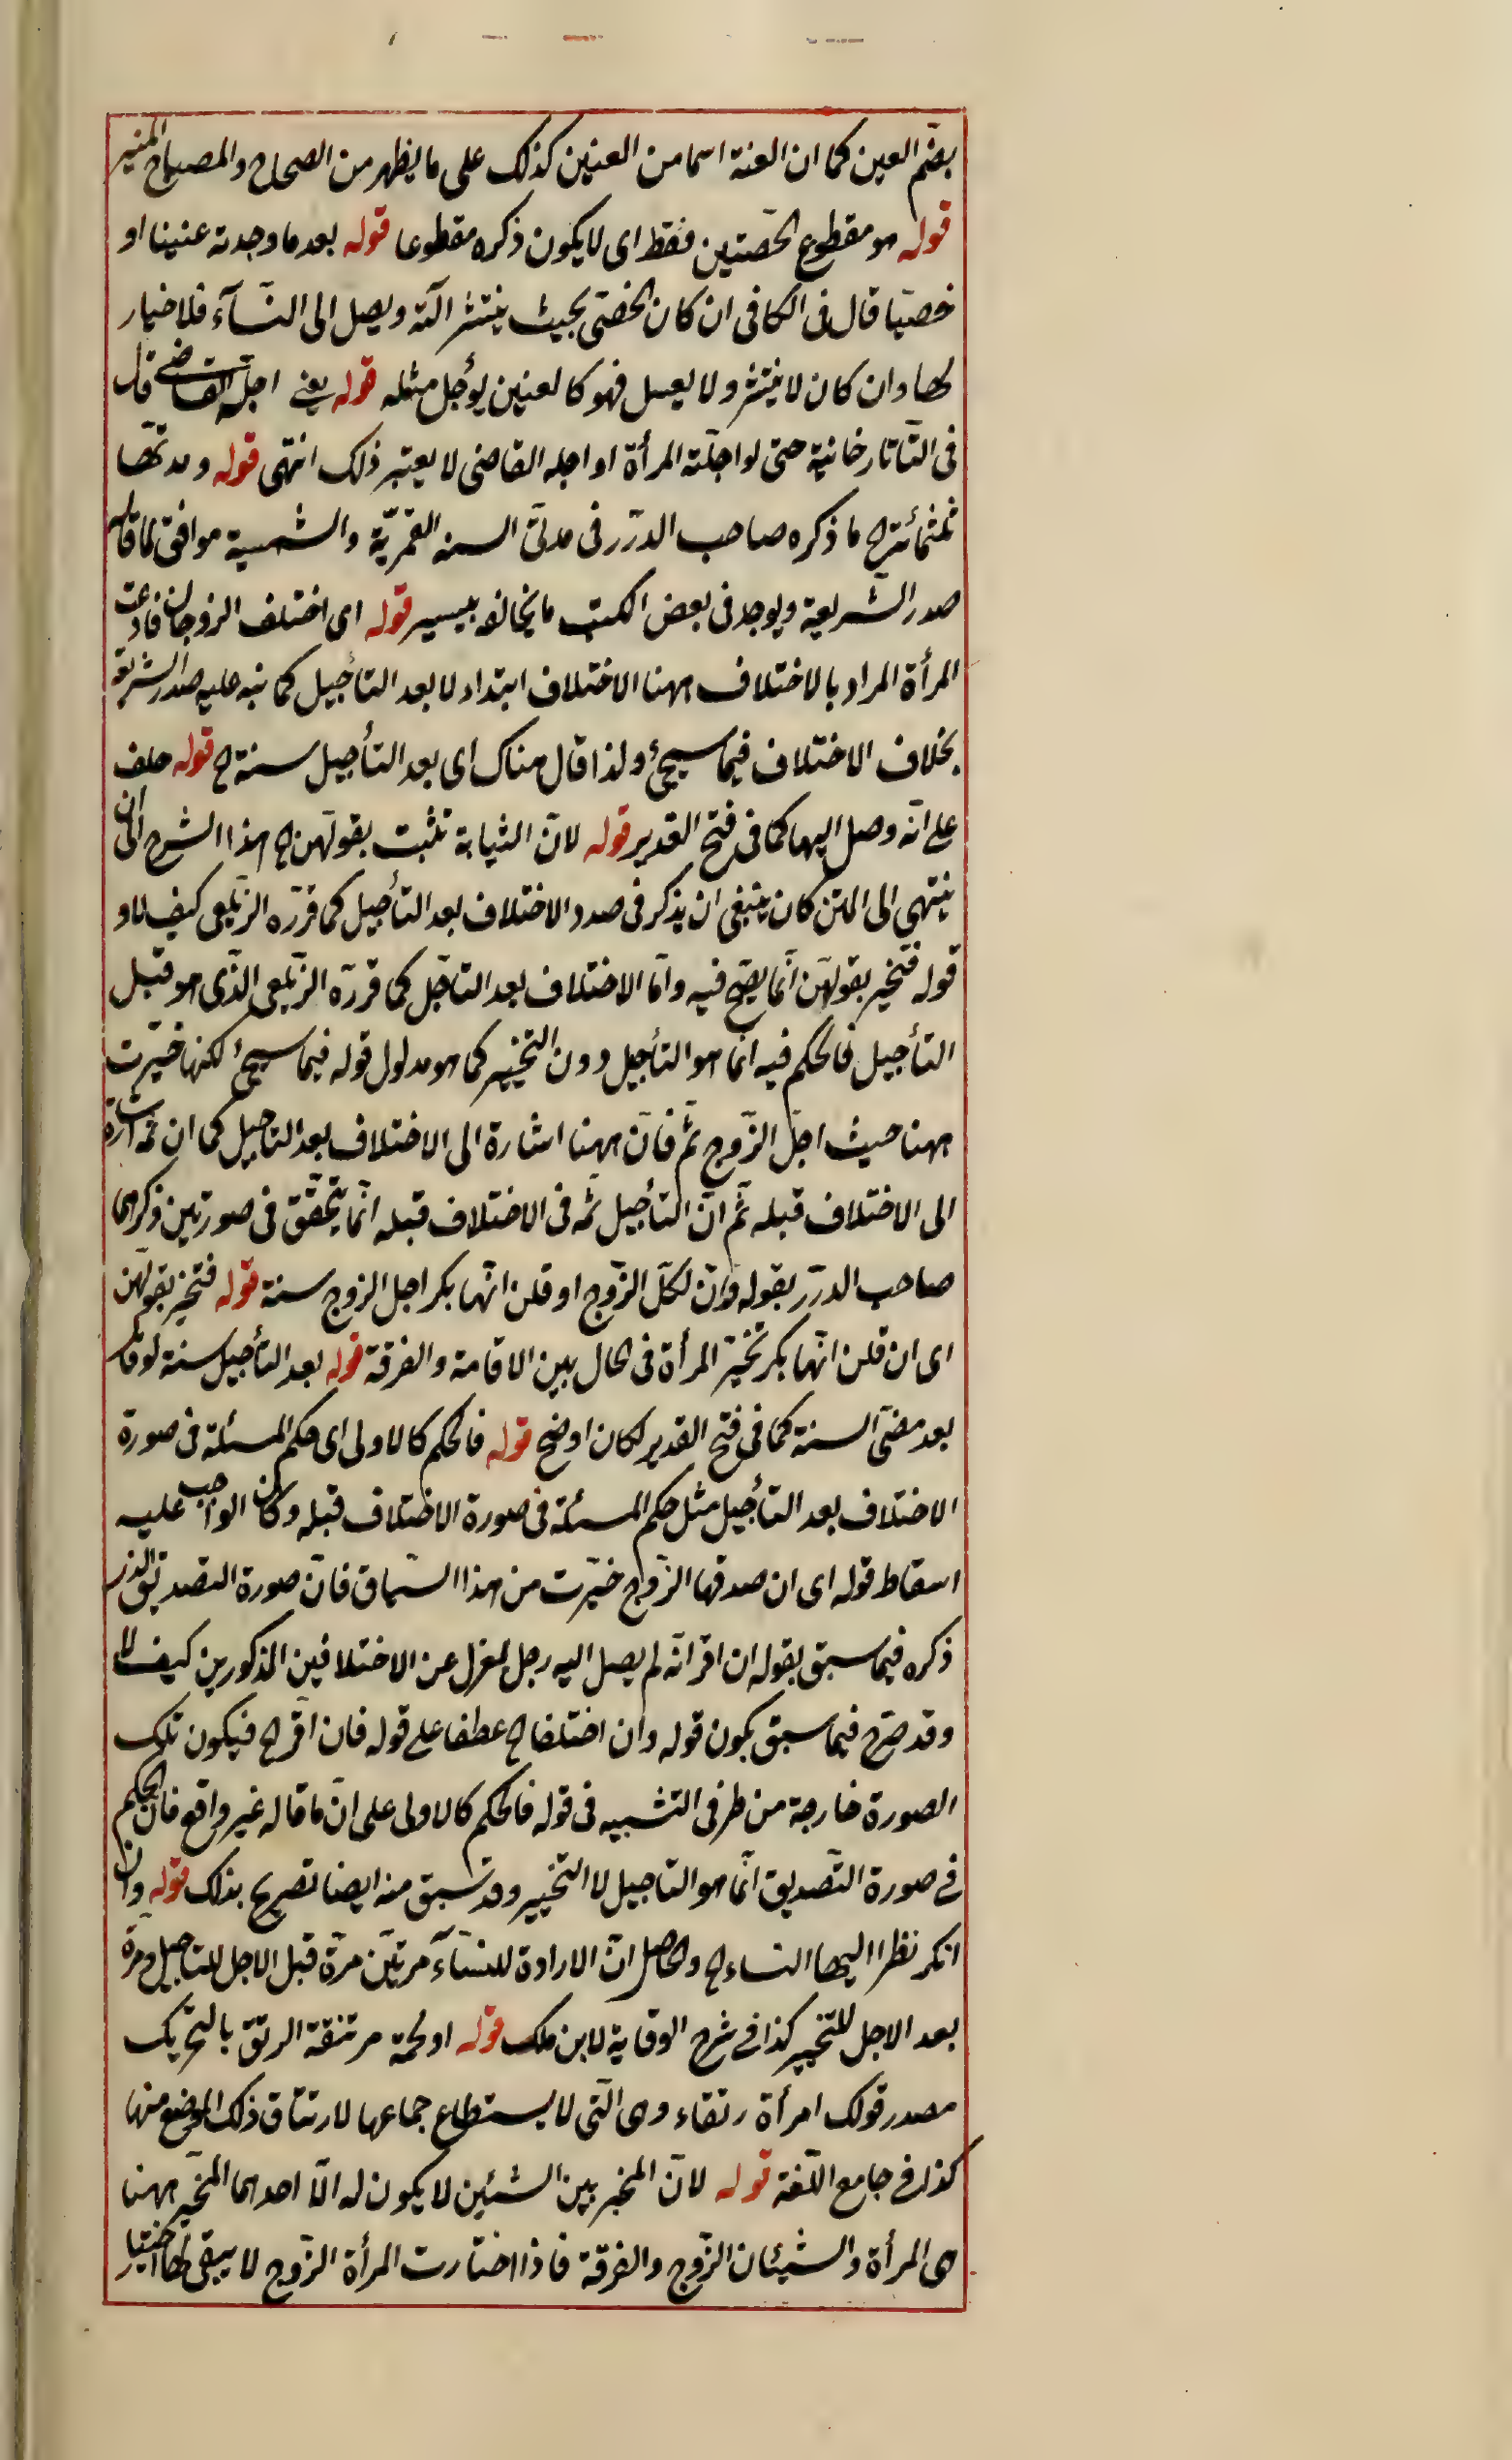 بضم العين كما ان العنة اسما من العنين كذلك على ما يظهر من الصحاح والمصباح المنير
قوله هو مقطوع الخصتين فقط اى لا يكون ذكره مقطوعا قوله بعد ما وجدته عنينا او
خصيّا قال فى الكافى ان كان الخصّى بحيث ينتشر آلته ويصل الى النسآء فلا خيار
لها وان كان لا ينتشر ولا يصل فهو كالعنين يؤجل مثله قوله يعنى اجله القاضى قال
فى التّاتارخانية حتى لو اجلته المرأة او اجله القاضى لا يعتبر ذلك انتهى قوله ومدتها
ثلثمائة الخ ما ذكره صاحب الدرر فى مدتى السنه القمريّة والشمسية موافق لما قاله
صدر الشريعة ويوجد فى بعض الكتب ما يخالفه بيسير قوله اى اختلف الزوجان فادعت
المرأة المراد بالاختلاف ههنا الاختلاف ابتداء لا بعد التأجيل كما نبه عليه صدر الشريعة
بخلاف الاختلاف فيما سيجئ ولذا قال هناك اى بعد التأجيل سنة الخ قوله حلف
على انّه وصل اليها كما فى فتح القدير قوله لانّ الثيابة تثبت بقولهن الخ هذا الشرح الى ان
ينتهى الى المتن كان ينبغى ان يذكر فى صدد الاختلاف بعد التأجيل كما قرّره الزيلعى كيف لا و
قوله فتخير بقولهّن انّما يصّح فيه وامّا الاختلاف بعد التأجّل كما قررّه الزيلعى الذّى هو قبل
التأجيل فالحكم فيه انّما هو التأجيل دون التخيير كما هو مدلول قوله فيما سيجئ لكنها خيرت
ههنا حيث اجل الزّوج ثمّ فانّ ههنا اشارة الى الاختلاف بعد التاجيل كما ان ثمه اشارة
الى الاختلاف قبله ثمّ انّ التأجيل ثمّه فى الاختلاف قبله انّما يتحقّق فى صورتين ذكرهما
صاحب الدرّر بقوله وانّ نكل الزّوج او قلن انّها بكر اجل الزوج سنة قوله فتخير بقولهن
اى ان قلن انّها بكر تخيّر المرأة فى الحال بين الاقامة والفرقة قوله بعد التأجيل سنة لو قال
بعد مضىّ السنة كما فى فتح القدير لكان اوضح قوله فالحكم كالاولى اى حكم المسئلة فى صورة
الاختلاف بعد التأجيل مثل حكم المسئلة فى صورة الاختلاف قبله وكان الواجب عليه
اسقاط قوله اى ان صدقها الزّوج خيّرت من هذا السّياق فانّ صورة التصديق الذى
ذكره فيما سبق بقوله ان اقر انّه لم يصل اليه رجل بمعزل عن الاختلافين المذكورين كيف لا
وقد صرّح فيما سبق بكون قوله وان اختلفا الخ عطفا على قوله فان اقّر الخ فيكون تلك
الصورة خارجة من طرفى التشبيه فى قوله فالحكم كالاولى على انّ ما قاله غير واقع فانّ الحكم
فى صورة التّصديق انّما هو التاجيل لا التخيير وقد سبق منه ايضا تصريح بذلك قوله وان
انكر نظر اليها النساء الخ والحاصل انّ الارادة للنسّآء مرتيّن مرّة قبل الاجل للتاجيل ومرة
بعد الاجل للتخيير كذا فى شرح الوقاية لابن ملك قوله او لحمة مرتتقة الرتق بالتحريك
مصدر قولك امرأة رتقاء وهى التّى لا يستطاع جماعها لارتتاق ذلك الموضع منها
كذا فى جامع اللّغة قوله لانّ المخير بين الشيئين لا يكون له الّا احدهما المخيّر ههنا
هى المرأة والشيئان الزّوج والفرقة فاذا اختارت المرأة الزّوج لا يبقى لها اختيار